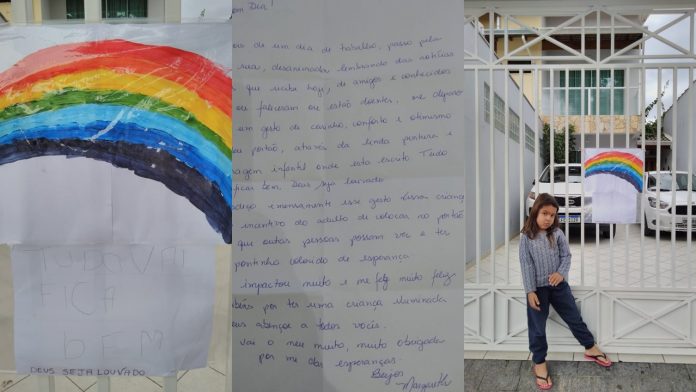 TUDO VAI
FICA
BEM
DEUS SEJA LOUVADO
om Dia!
ois de um dia de trabalho, passo pela
sua, desanimada lembrando das notícias
que recebi hoje, de amigos e conhecidos
ou faleceram ou estão doentes, me deparo
um gesto de carinho, conforto e otimismo
eu portão, através da linda pintura e
agem infantil onde esta escrito Tudo
ficar bem, Deus seja louvado
adeço emensamente esse gesto dessa criança
incentivo do adulto de colocar no portão
que outras pessoas possam ver e ter
pontinho colorido de esperança
impactou muito e me fez muito feliz
abéns por ter uma criança iluminada
eus abençoe a todos vocês.
Vai o meu muito, muito obrigada
por me dar esperanças.
Beijos